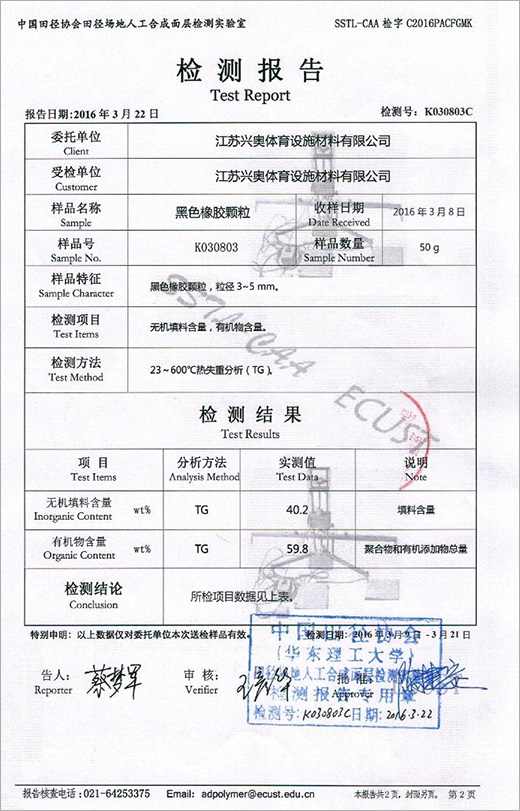 中国田径协会田径场地人工合成面层检测实验室 SSTL-CAA 检字 C2016PACFGMK
检测报告
Test Report
报告日期:2016 年 3 月 22 日 检测号: K030803C
委托单位 江苏兴奥体育设施材料有限公司
Client
受检单位 江苏兴奥体育设施材料有限公司
Customer
样品名称 黑色橡胶颗粒 收样日期 2016 年 3 月 8 日
Sample Date Received
样品号 K030803 样品数量 50 g
Sample No. Sample Number
样品特征 黑色橡胶颗粒，粒径 3~5 mm。
Sample Character
检测项目 无机填料含量，有机物含量。
Test Items
检测方法 23~600℃热失重分析（TG）。
Test Method
SSTL-CAA ECUST
检测结果
Test Results
项目 分析方法 实测值 说明
Test Items Analysis Method Test Data Note
无机填料含量 wt% TG 40.2 填料含量
Inorganic Content
有机物含量 wt% TG 59.8 聚合物和有机添加物总量
Organic Content
检测结论 所检项目数据见上表。
Conclusion
特别申明：以上数据仅对委托单位本次送检样品有效。 检测日期: 2016 年 3 月 9 日 - 3 月 21 日
中国田径协会
(华东理工大学)
田径场地人工合成面层检测实验室
检测报告专用章
检测号: K030803C 日期: 2016.3.22
告人: 蔡梦军 审核: 批准:
Reporter Verifier Approver
报告核查电话:021-64253375 Email: adpolymer@ecust.edu.cn 本报告共2页，封面另页。 第 2 页